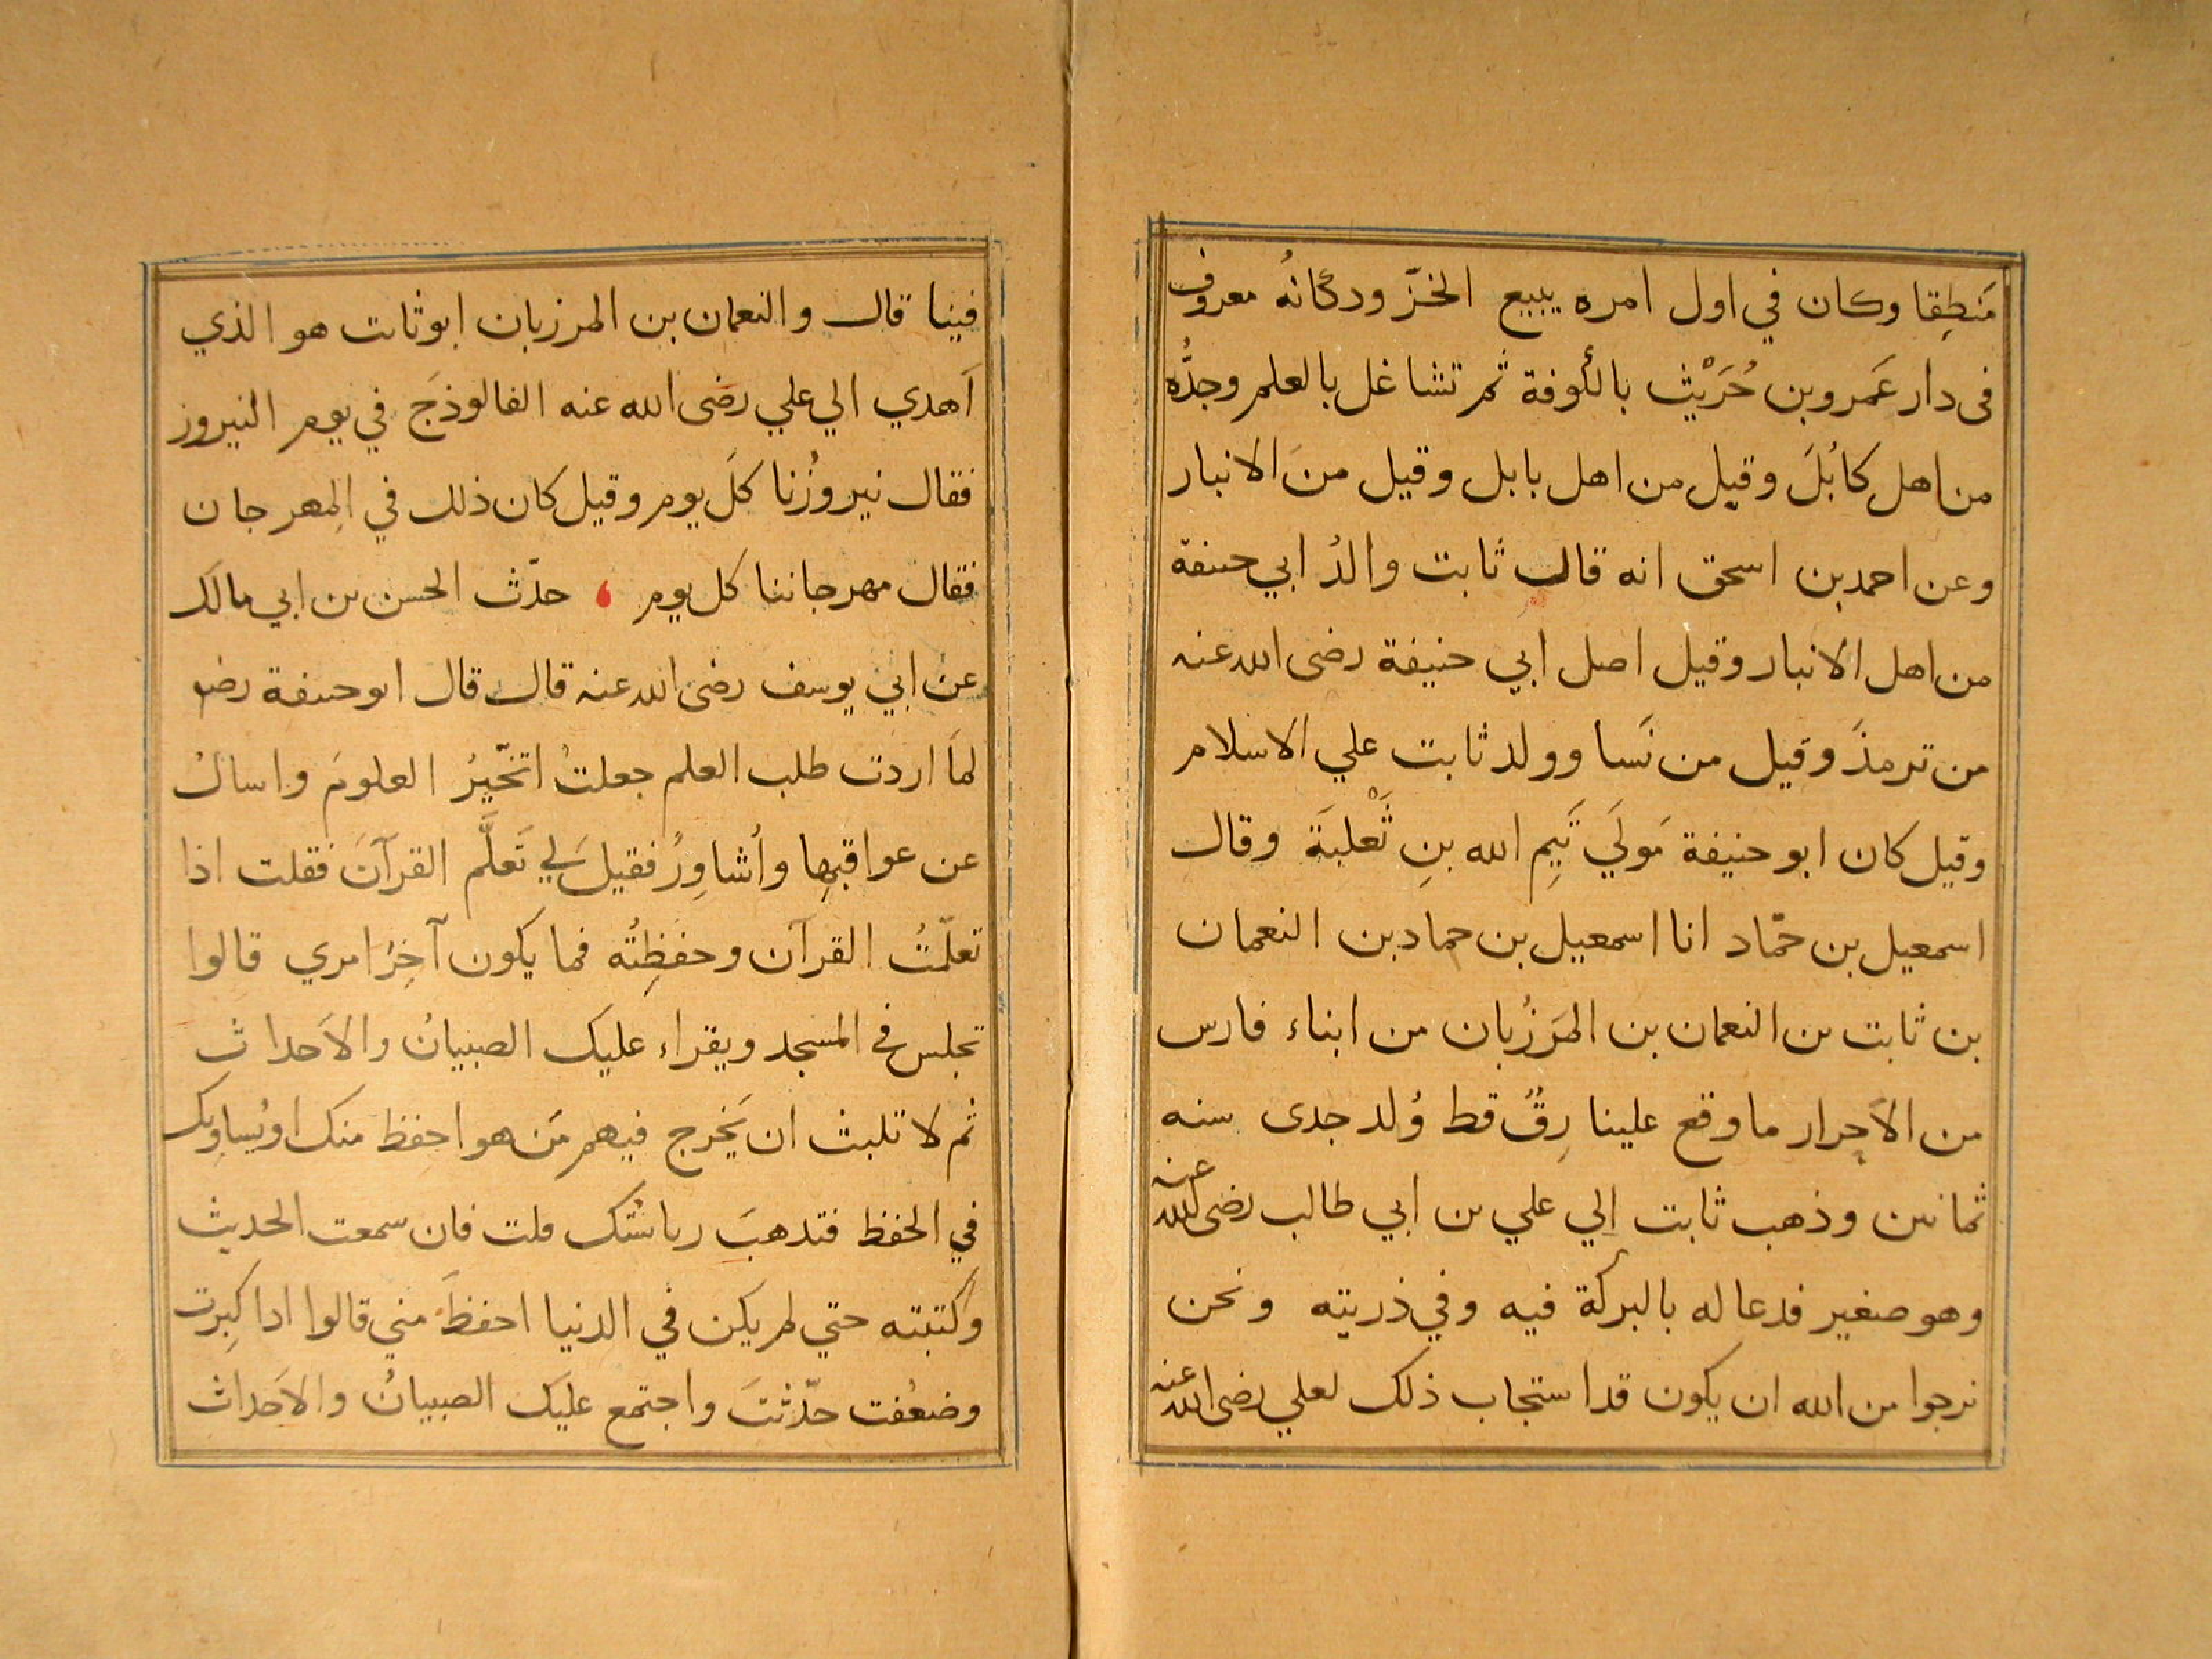 مَنطِقا وكان في اول امره يبيع الخزّ ودكانُه معروف
فى دار عَمرو بن حُرَيْث بالكوفة ثم تشاغل بالعلم وجدُّه
من اهل كابُلَ وقيل من اهل بابل وقيل منَ الانبار
وعن احمد بن اسحق انه قال ثابت والدُ ابي حنيفة
من اهل الانبار وقيل اصل ابي حنيفة رضى الله عنه
من ترمذَ وقيل من نَسا وولد ثابت علي الاسلام
وقيل كان ابو حنيفة مَولَي تَيمِ الله بنِ ثَعْلبَةَ وقال
اسمعيل بن حمّاد انا اسمعيل بن حماد بن النعمان
بن ثابت بن النعمان بن المَرزُبان من ابناء فارس
من الاَحرار ما وقع علينا رِقٌ قط وُلد جدى سنه
ثمانين وذهب ثابت اِلي علي بن ابي طالب رضى الله عنه
وهو صغير فدعا له بالبركة فيه وفي ذريته ونحن
نرجوا من الله ان يكون قد استجاب ذلك لعلي رضى الله عنه
فينا قال والنعمان بن المرزبان ابو ثابت هو الذي
اَهدي الي علي رضى الله عنه الفالوذجَ في يوم النيروز
فقال نيروزُنا كلَ يوم وقيل كان ذلك في المِهرجان
فقال مهرجاننا كل يوم ، حدّث الحسن بن ابي مالك
عن ابي يوسف رضى الله عنه قال قال ابو حنيفة رضى
لمَا اردت طلب العلم جعلتُ اتخّيرُ العلومَ واسالُ
عن عواقبِها واُشاوِرُ فقيل لي تَعلَّم القرآنَ فقلت اذا
تعلّمتُ القرآن وحفظِتُه فما يكون آخِرُ امري قالوا
تجلس في المسجد ويقراء عليك الصبيانُ والاَحداث
ثم لا تلبث ان يَخرج فيهم مَن هو احفظ منك او يُساوِيك
في الحفظ فتذهبَ رياسَتُك قلت فان سمعت الحديث
وكتبته حتي لم يكن في الدنيا احفظَ مني قالوا اذا كبِرت
وضعُفت حدّثتَ واجتمع عليك الصبيانُ والاَحداث